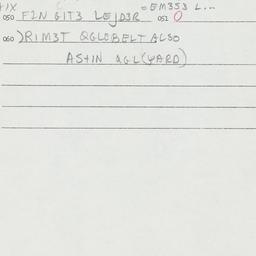 = EM353 L...
050 FIN GIT3 LEJD3R 051 0
060 )RIM3T QGLOBELT ALSO
ASTIN QGL(YARD)